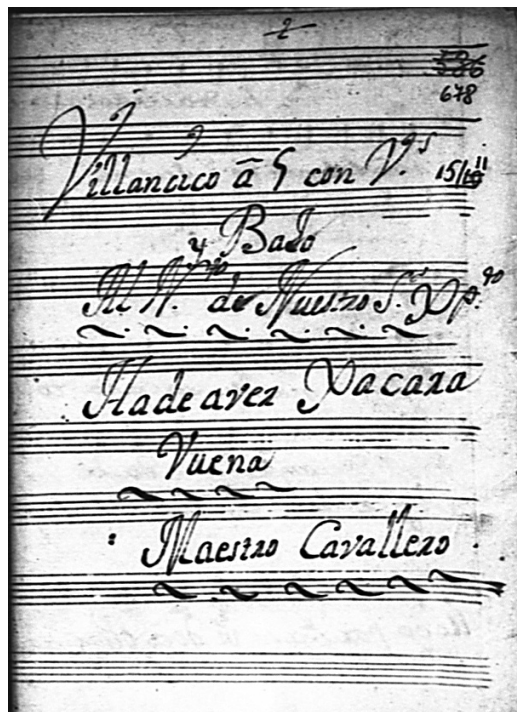 2
586
678
Villancico â 5 con V.es 15/11
y Bajo
Al N.to de Nuestro S.r Xp.to
Ha de aver Xacara
Vuena
Maestro Cavallero